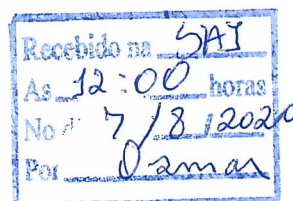 Recebido na SAJ
As 12:00 horas
No 7/8/2020
Por Osmar